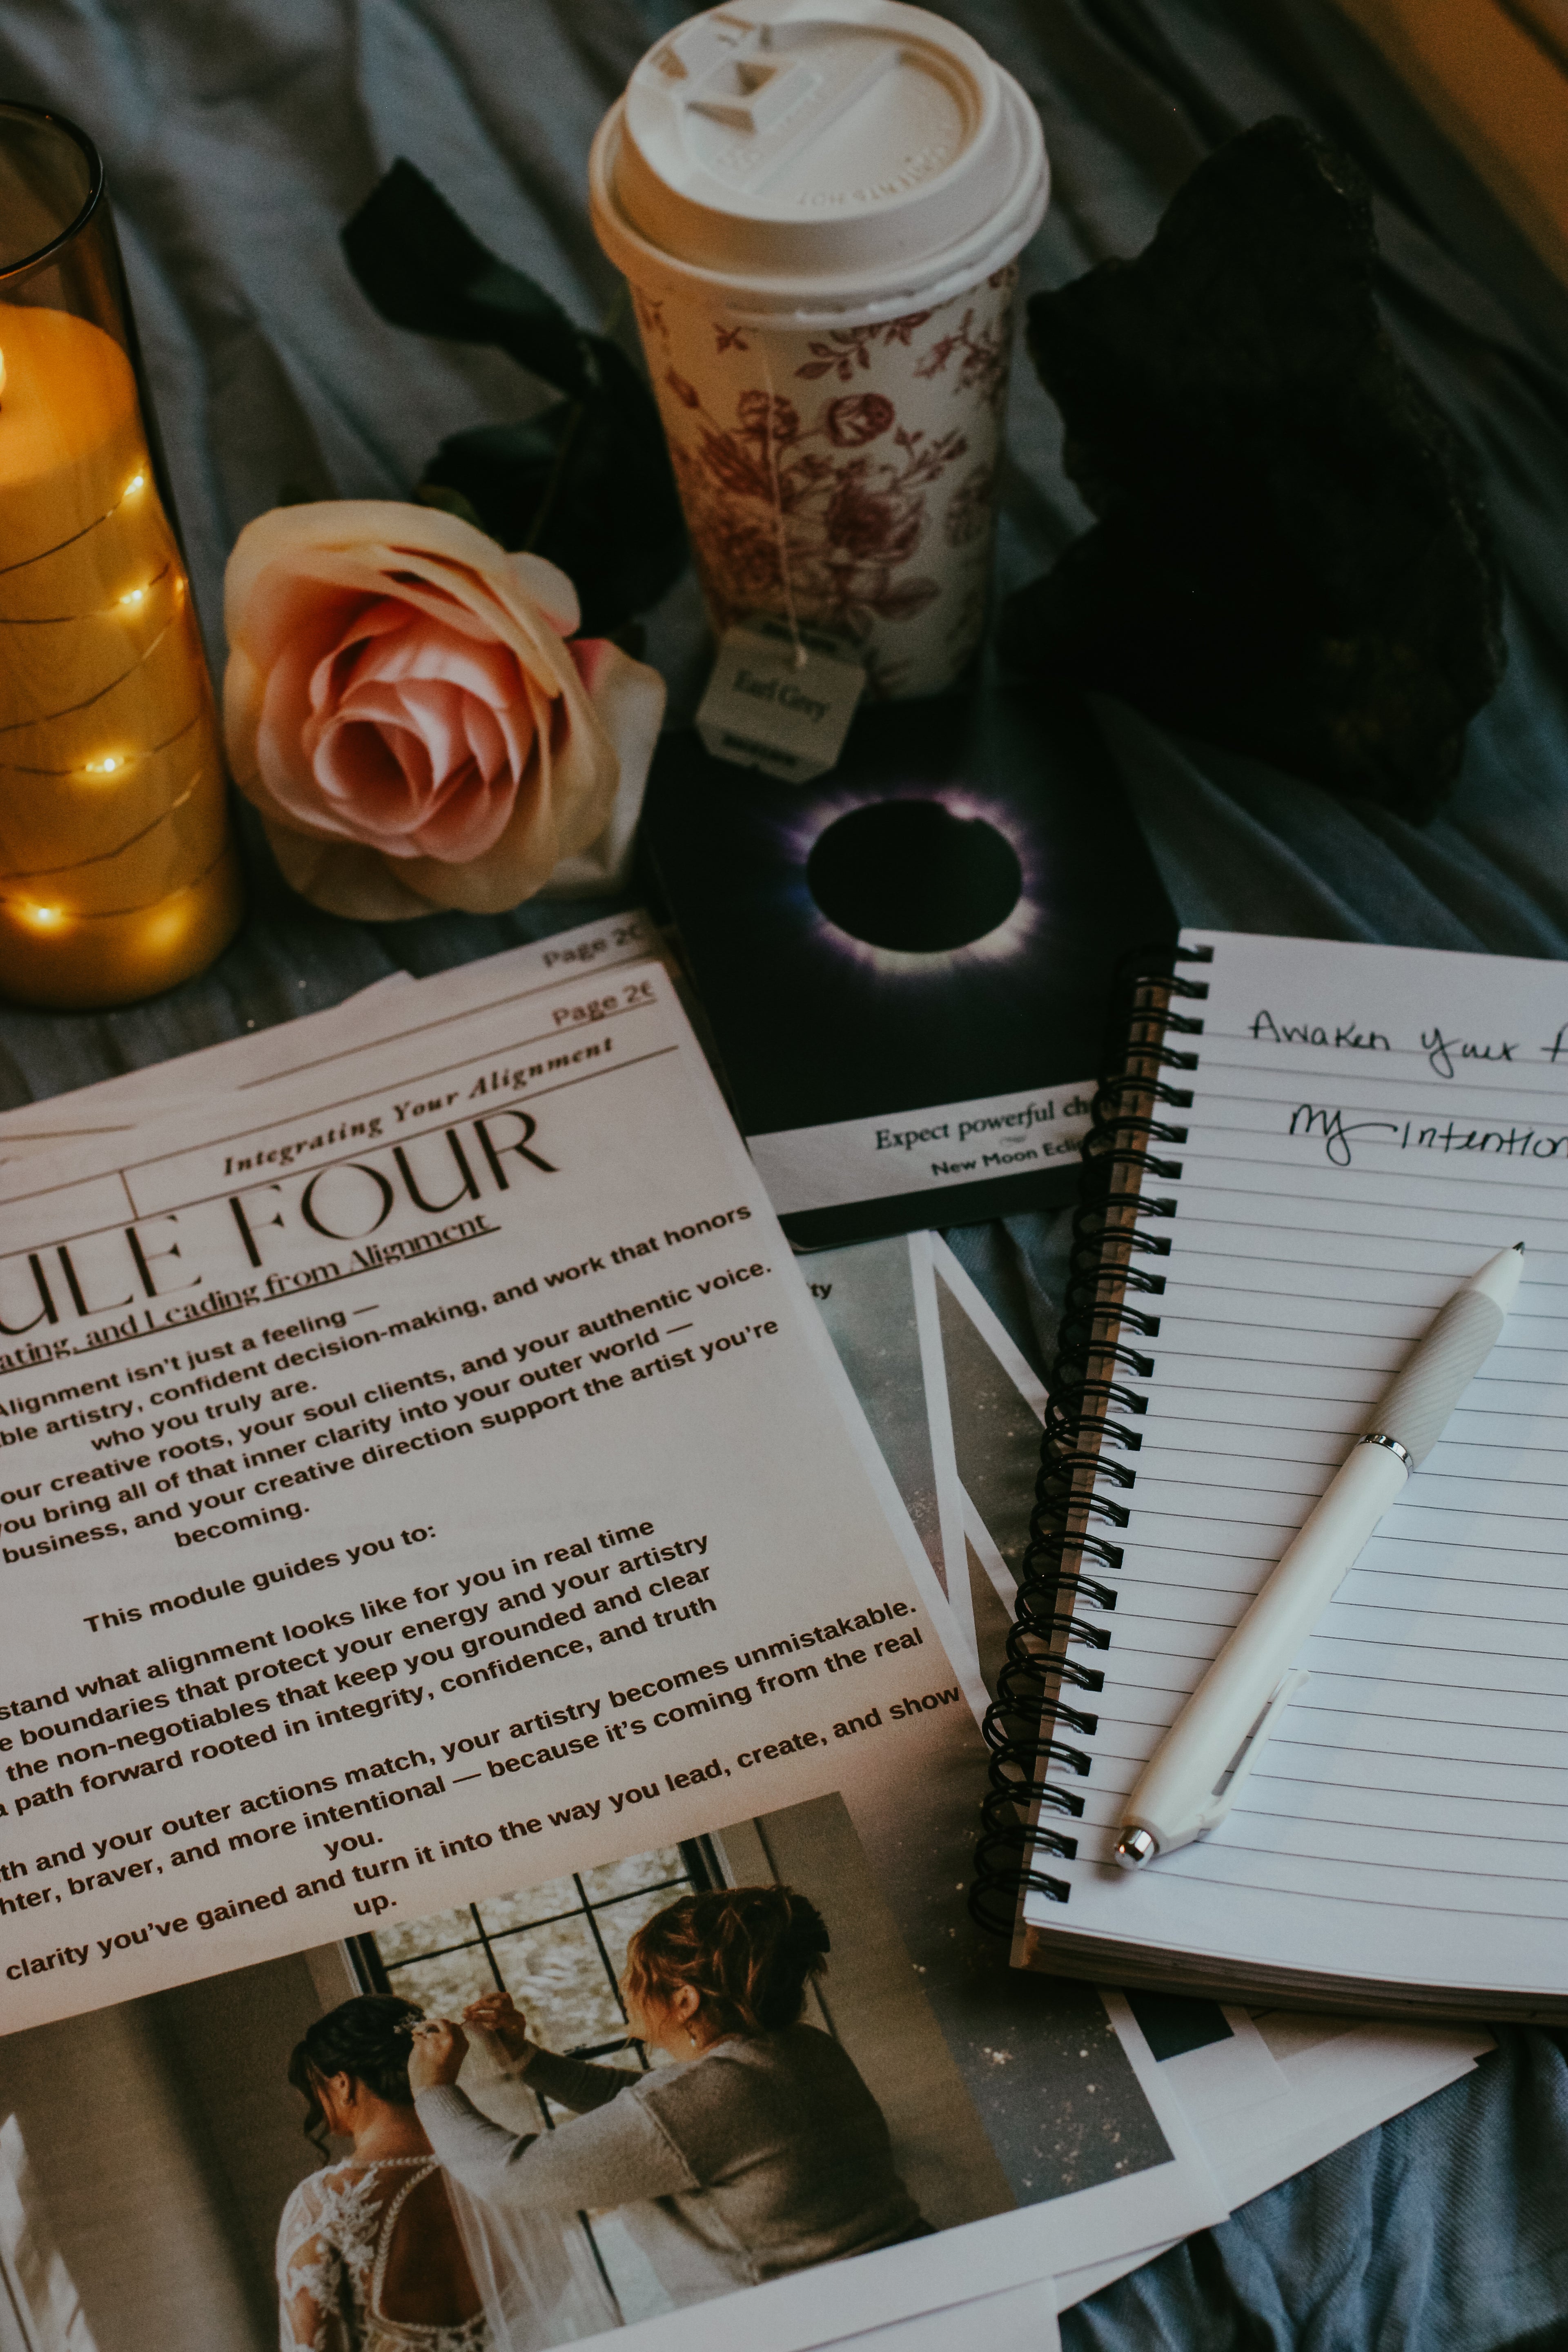 CONTENTS HOT
Earl Grey
Page 2
Page 26
Integrating Your Alignment
ULE FOUR
ating, and Leading from Alignment
Alignment isn't just a feeling —
ble artistry, confident decision-making, and work that honors
who you truly are.
our creative roots, your soul clients, and your authentic voice.
you bring all of that inner clarity into your outer world —
business, and your creative direction support the artist you're
becoming.
This module guides you to:
stand what alignment looks like for you in real time
e boundaries that protect your energy and your artistry
the non-negotiables that keep you grounded and clear
a path forward rooted in integrity, confidence, and truth
th and your outer actions match, your artistry becomes unmistakable.
hter, braver, and more intentional — because it's coming from the real
you.
clarity you've gained and turn it into the way you lead, create, and show
up.
Expect powerful ch
New Moon Ecli
ty
Awaken your
My Intention